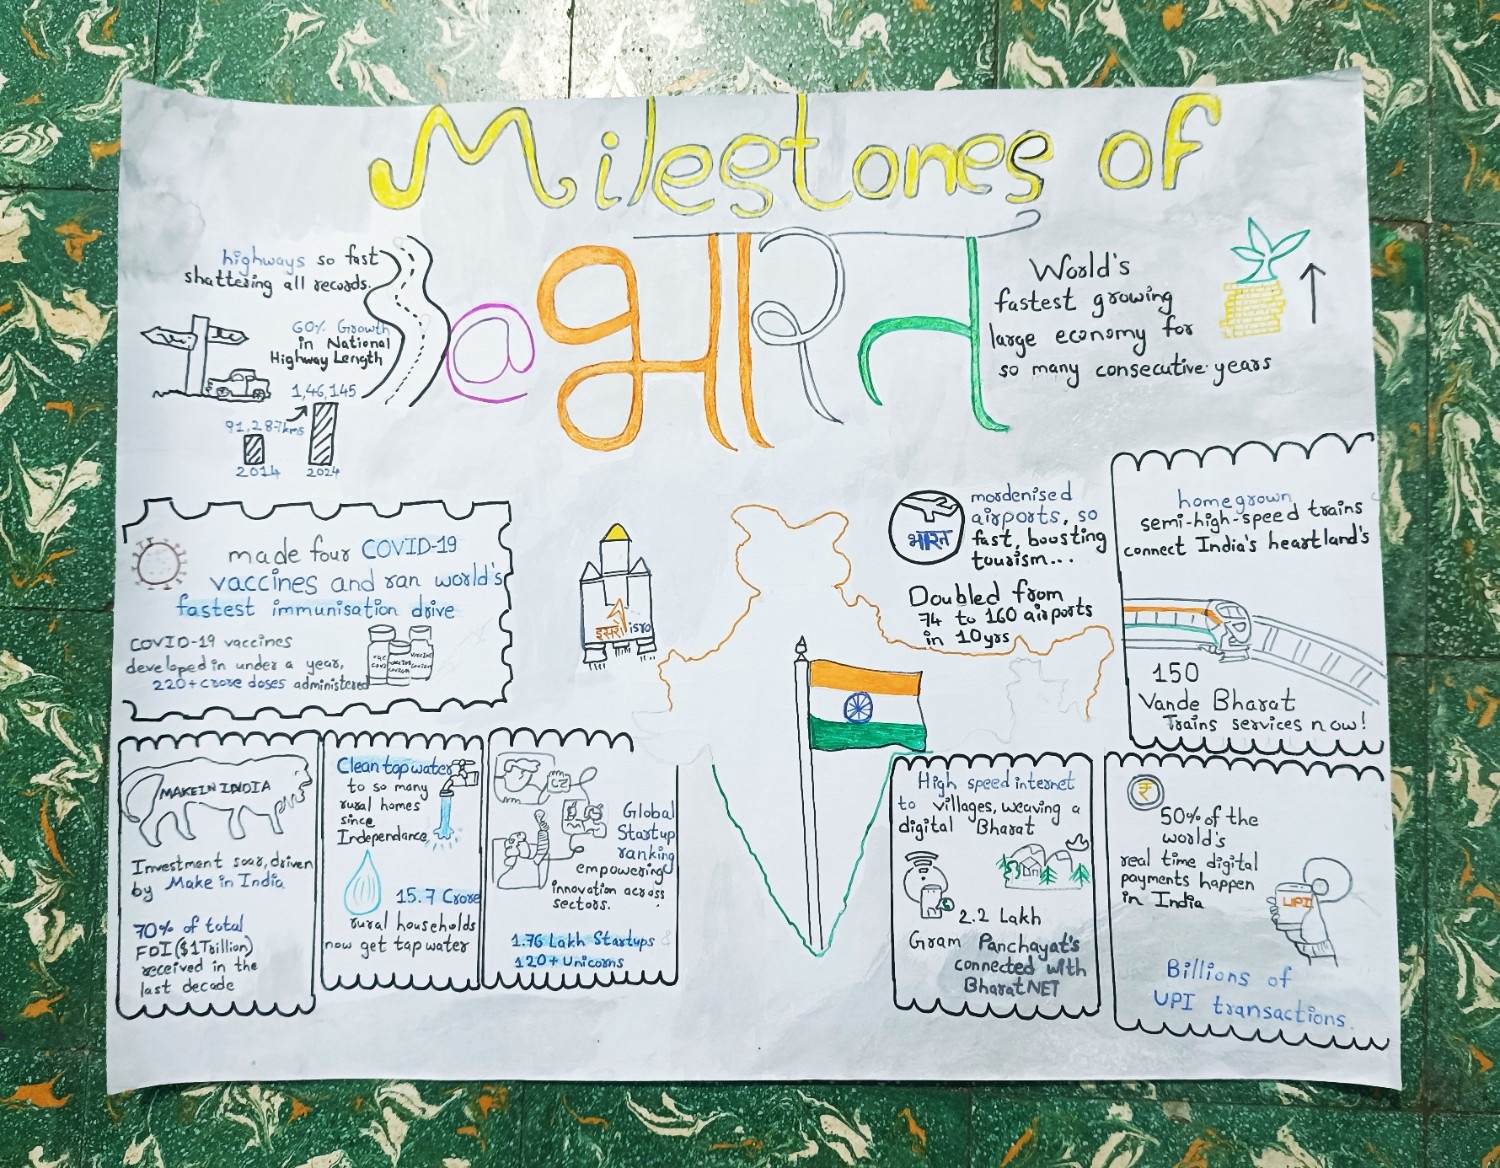 Milestones of
@भारत
highways so fast
shattering all records.
60% Growth
in National
Highway Length
1,46,145
91,287kms
2014
2024
World's
fastest growing
large economy for
so many consecutive years
made four COVID-19
vaccines and ran world's
fastest immunisation drive
COVID-19 vaccines
developed in under a year,
220+crore doses administered
इसरो isro
भारत
mordenised
airports, so
fast, boosting
tourism...
Doubled from
74 to 160 airports
in 10yrs
homegrown
semi-high-speed trains
connect India's heartland's
150
Vande Bharat
Trains services now!
MAKE IN INDIA
Investment soar, driven
by Make in India
70% of total
FDI ($1Trillion)
received in the
last decade
Clean tap water
to so many
rural homes
since
Independance,
15.7 Crore
rural households
now get tap water
Global
Startup
ranking
empowering
innovation across
sectors.
1.76 Lakh Startups &
120+ Unicorns
High speed internet
to villages, weaving a
digital Bharat
2.2 Lakh
Gram Panchayat's
connected with
BharatNET
₹
50% of the
world's
real time digital
payments happen
in India
UPI
Billions of
UPI transactions.